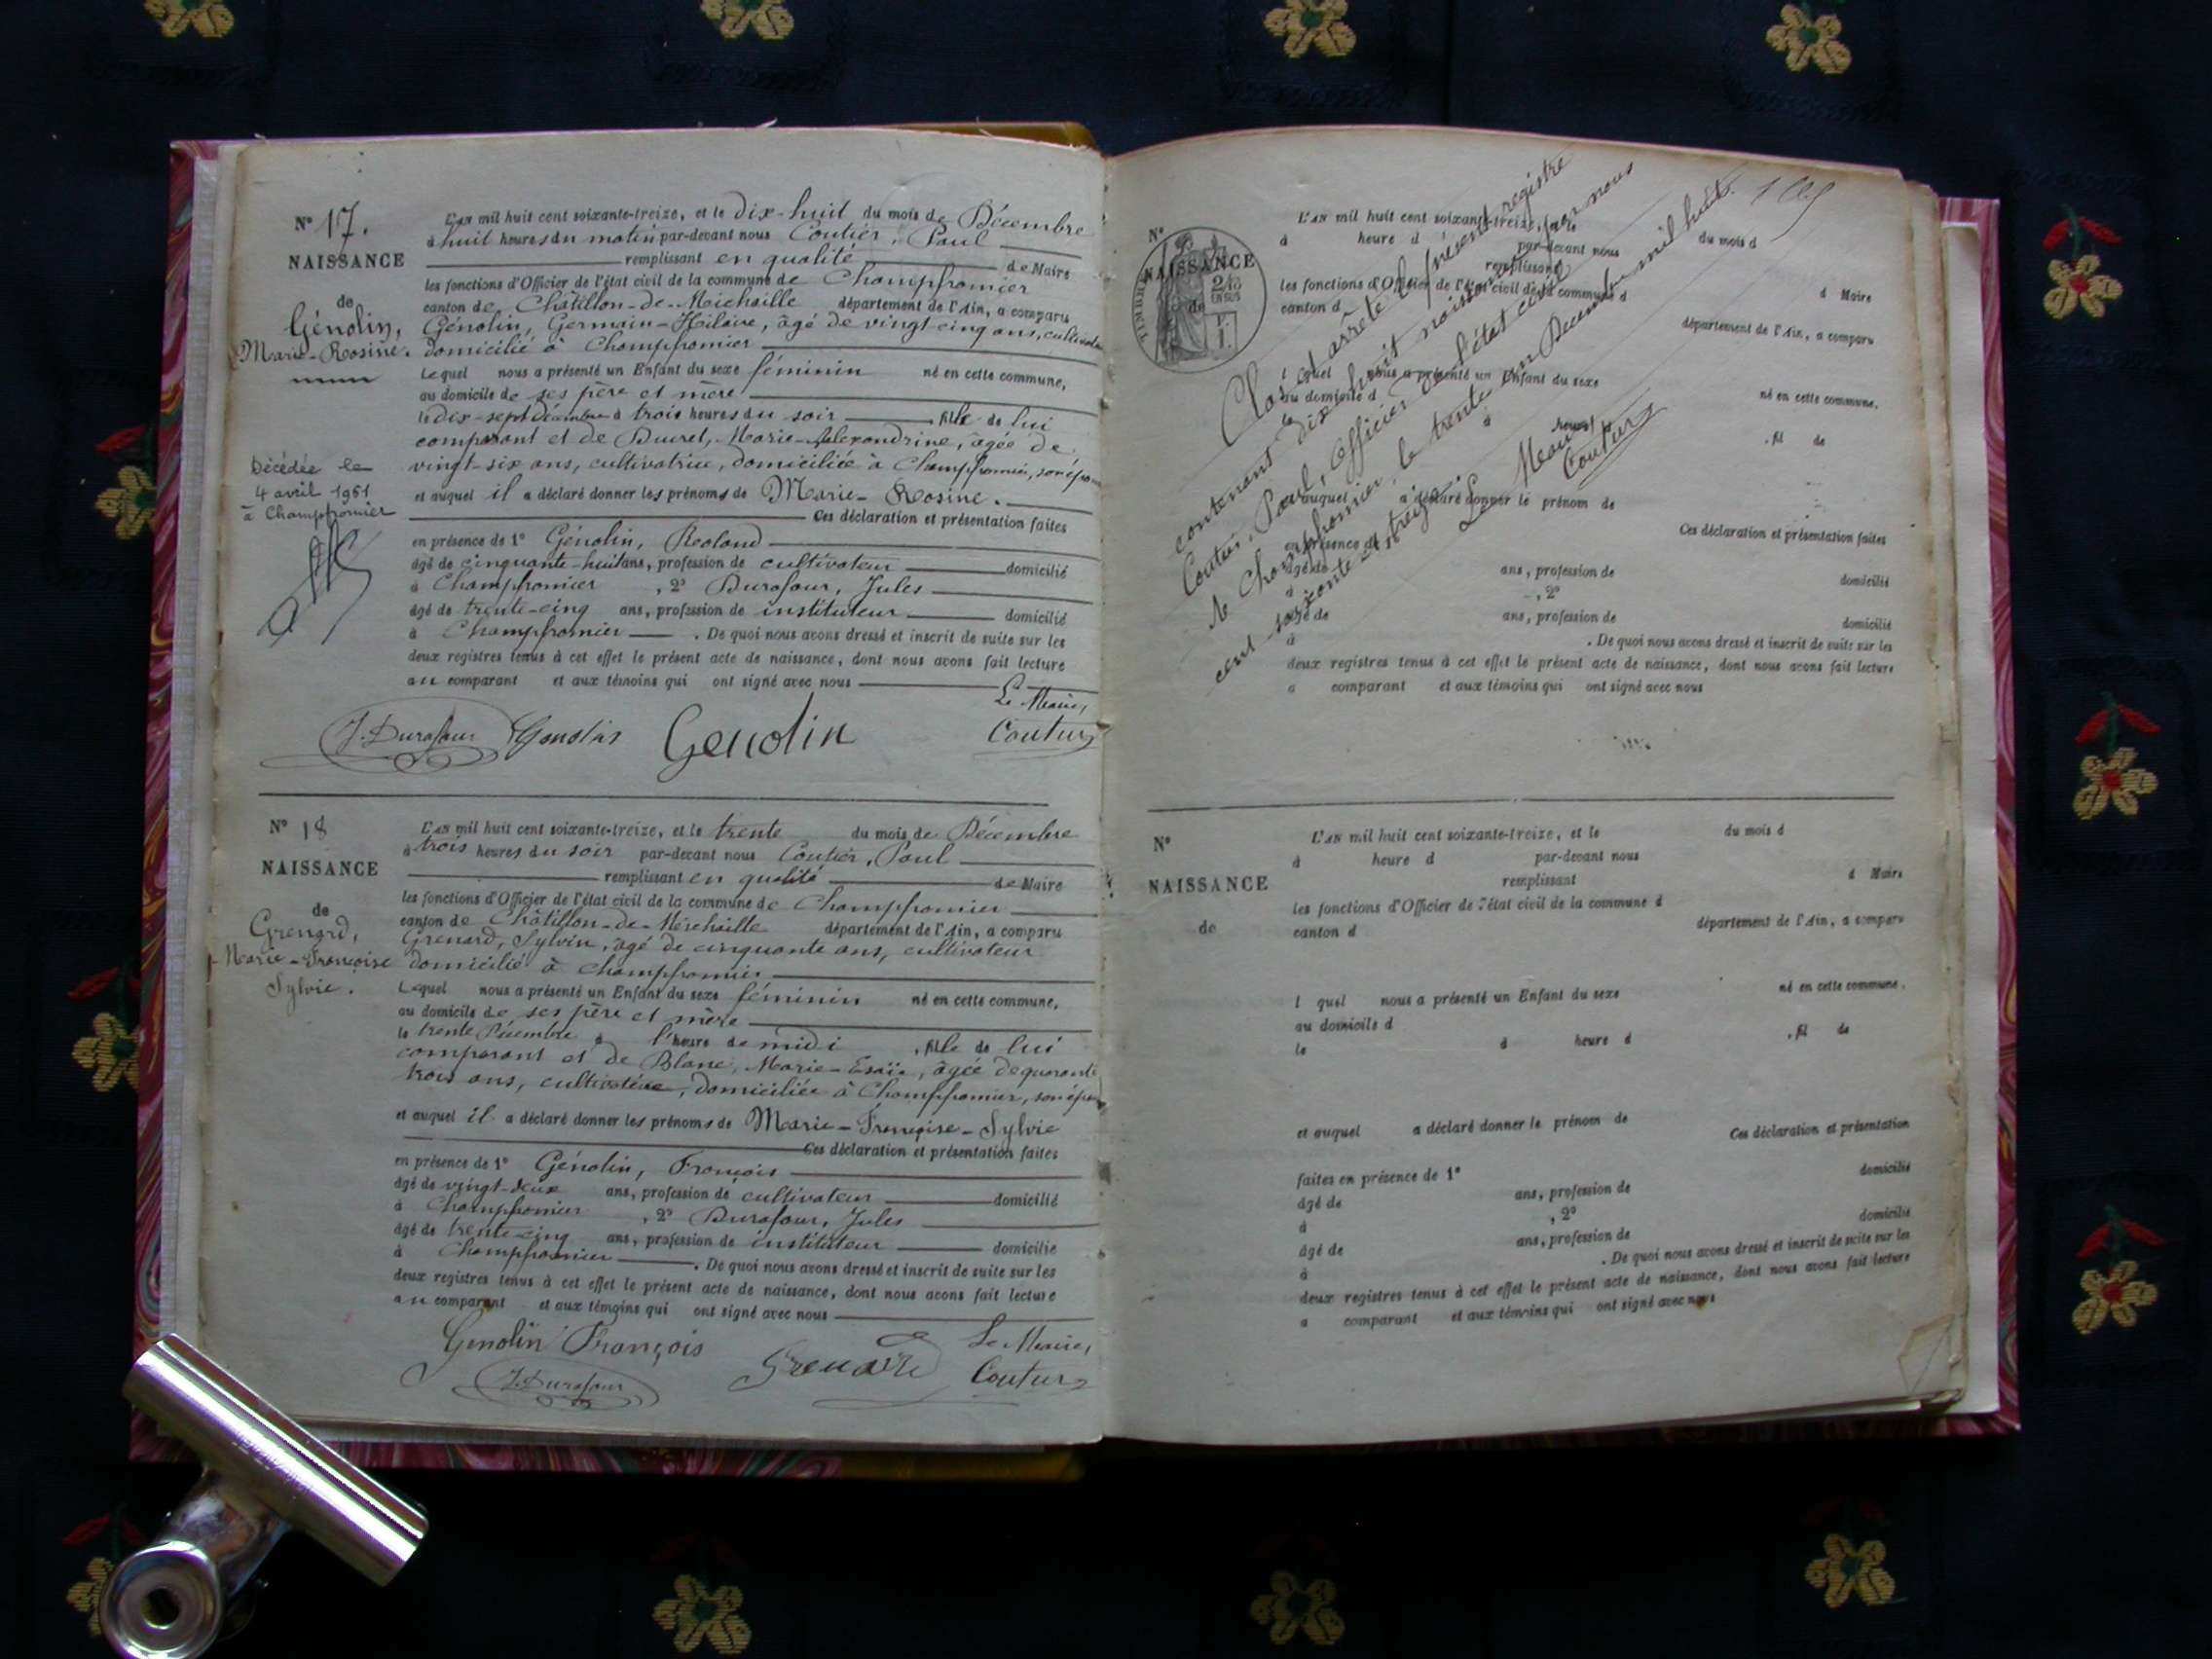 N° 17.
NAISSANCE
de
Génolin,
Marie-Rosine.
Décédée le
4 avril 1961
à Champfromier
L'AN mil huit cent soixante-treize, et le dix-huit du mois de Décembre
à huit heures du matin par-devant nous Coutier, Paul
remplissant en qualité de Maire
les fonctions d'Officier de l'état civil de la commune de Champfromier
canton de Châtillon-de-Michaille département de l'Ain, a comparu
Génolin, Germain-Hilaire, âgé de vingt-cinq ans, cultivateur
domicilié à Champfromier
Lequel nous a présenté un Enfant du sexe féminin né en cette commune,
au domicile de ses père et mère
le dix-sept Décembre à trois heures du soir, fille de lui
comparant et de Ducret, Marie-Alexandrine, âgée de
vingt-six ans, cultivatrice, domiciliée à Champfromier, son épouse
et auquel il a déclaré donner les prénoms de Marie-Rosine.
Ces déclaration et présentation faites
en présence de 1° Génolin, Roland
âgé de cinquante-huit ans, profession de cultivateur domicilié
à Champfromier, 2° Durafour, Jules
âgé de trente-cinq ans, profession de instituteur domicilié
à Champfromier. De quoi nous avons dressé et inscrit de suite sur les
deux registres tenus à cet effet le présent acte de naissance, dont nous avons fait lecture
au comparant et aux témoins qui ont signé avec nous
Le Maire,
J. Durafour Genolin Genolin Coutier
N° 18
NAISSANCE
de
Grenard,
Marie-Françoise
Sylvie.
L'AN mil huit cent soixante-treize, et le trente du mois de Décembre
à trois heures du soir par-devant nous Coutier, Paul
remplissant en qualité de Maire
les fonctions d'Officier de l'état civil de la commune de Champfromier
canton de Châtillon-de-Michaille département de l'Ain, a comparu
Grenard, Sylvin, âgé de cinquante ans, cultivateur
domicilié à Champfromier
Lequel nous a présenté un Enfant du sexe féminin né en cette commune,
au domicile de ses père et mère
le trente Décembre à l'heure de midi, fille de lui
comparant et de Blanc, Marie-Esaïe, âgée de quarante
trois ans, cultivatrice, domiciliée à Champfromier, son épouse
et auquel il a déclaré donner les prénoms de Marie-Françoise-Sylvie
Ces déclaration et présentation faites
en présence de 1° Génolin, François
âgé de vingt-deux ans, profession de cultivateur domicilié
à Champfromier, 2° Durafour, Jules
âgé de trente-cinq ans, profession de instituteur domicilié
à Champfromier. De quoi nous avons dressé et inscrit de suite sur les
deux registres tenus à cet effet le présent acte de naissance, dont nous avons fait lecture
au comparant et aux témoins qui ont signé avec nous
Genolin François Le Maire,
J. Durafour Grenard Coutier
N°
NAISSANCE
de
TIMBRE
2/10
EN SUS
L'AN mil huit cent soixante-treize, et le du mois d
à heure d par-devant nous
remplissant d Maire
les fonctions d'Officier de l'état civil de la commune d
canton d département de l'Ain, a comparu
l quel nous a présenté un Enfant du sexe né en cette commune,
au domicile d
le à heure d, fil de
et auquel a déclaré donner le prénom de
Ces déclaration et présentation faites
en présence de 1°
âgé de ans, profession de domicilié
à , 2°
âgé de ans, profession de domicilié
à . De quoi nous avons dressé et inscrit de suite sur les
deux registres tenus à cet effet le présent acte de naissance, dont nous avons fait lecture
a comparant et aux témoins qui ont signé avec nous
Clos et arrêté le présent registre
contenant dix-huit naissances par nous
Coutier, Paul, Officier de l'état civil
de Champfromier, le trente un Décembre mil huit
cent soixante et treize. Le Maire,
Coutier
N°
NAISSANCE
de
L'AN mil huit cent soixante-treize, et le du mois d
à heure d par-devant nous
remplissant d Maire
les fonctions d'Officier de l'état civil de la commune d
canton d département de l'Ain, a comparu
l quel nous a présenté un Enfant du sexe né en cette commune,
au domicile d
le à heure d , fil de
et auquel a déclaré donner le prénom de
Ces déclaration et présentation
faites en présence de 1° domicilié
âgé de ans, profession de
à , 2° domicilié
âgé de ans, profession de
à . De quoi nous avons dressé et inscrit de suite sur les
deux registres tenus à cet effet le présent acte de naissance, dont nous avons fait lecture
a comparant et aux témoins qui ont signé avec nous